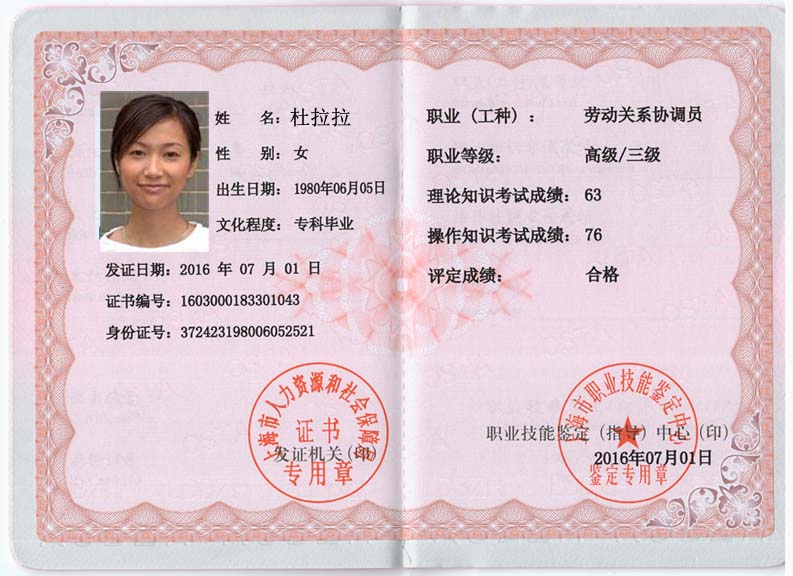 姓 名：杜拉拉
性 别：女
出生日期：1980年06月05日
文化程度：专科毕业
发证日期：2016 年 07 月 01 日
证书编号：1603000183301043
身份证号：372423198006052521
上海市人力资源和社会保障局
证书
发证机关(印)
专用章
职业（工种）： 劳动关系协调员
职业等级： 高级/三级
理论知识考试成绩：63
操作知识考试成绩：76
评定成绩： 合格
上海市职业技能鉴定中心
职业技能鉴定（指导）中心（印）
2016年07月01日
鉴定专用章